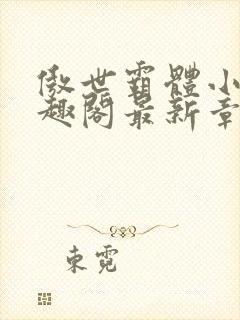 傲世霸體小
趣閣最新章
東霓